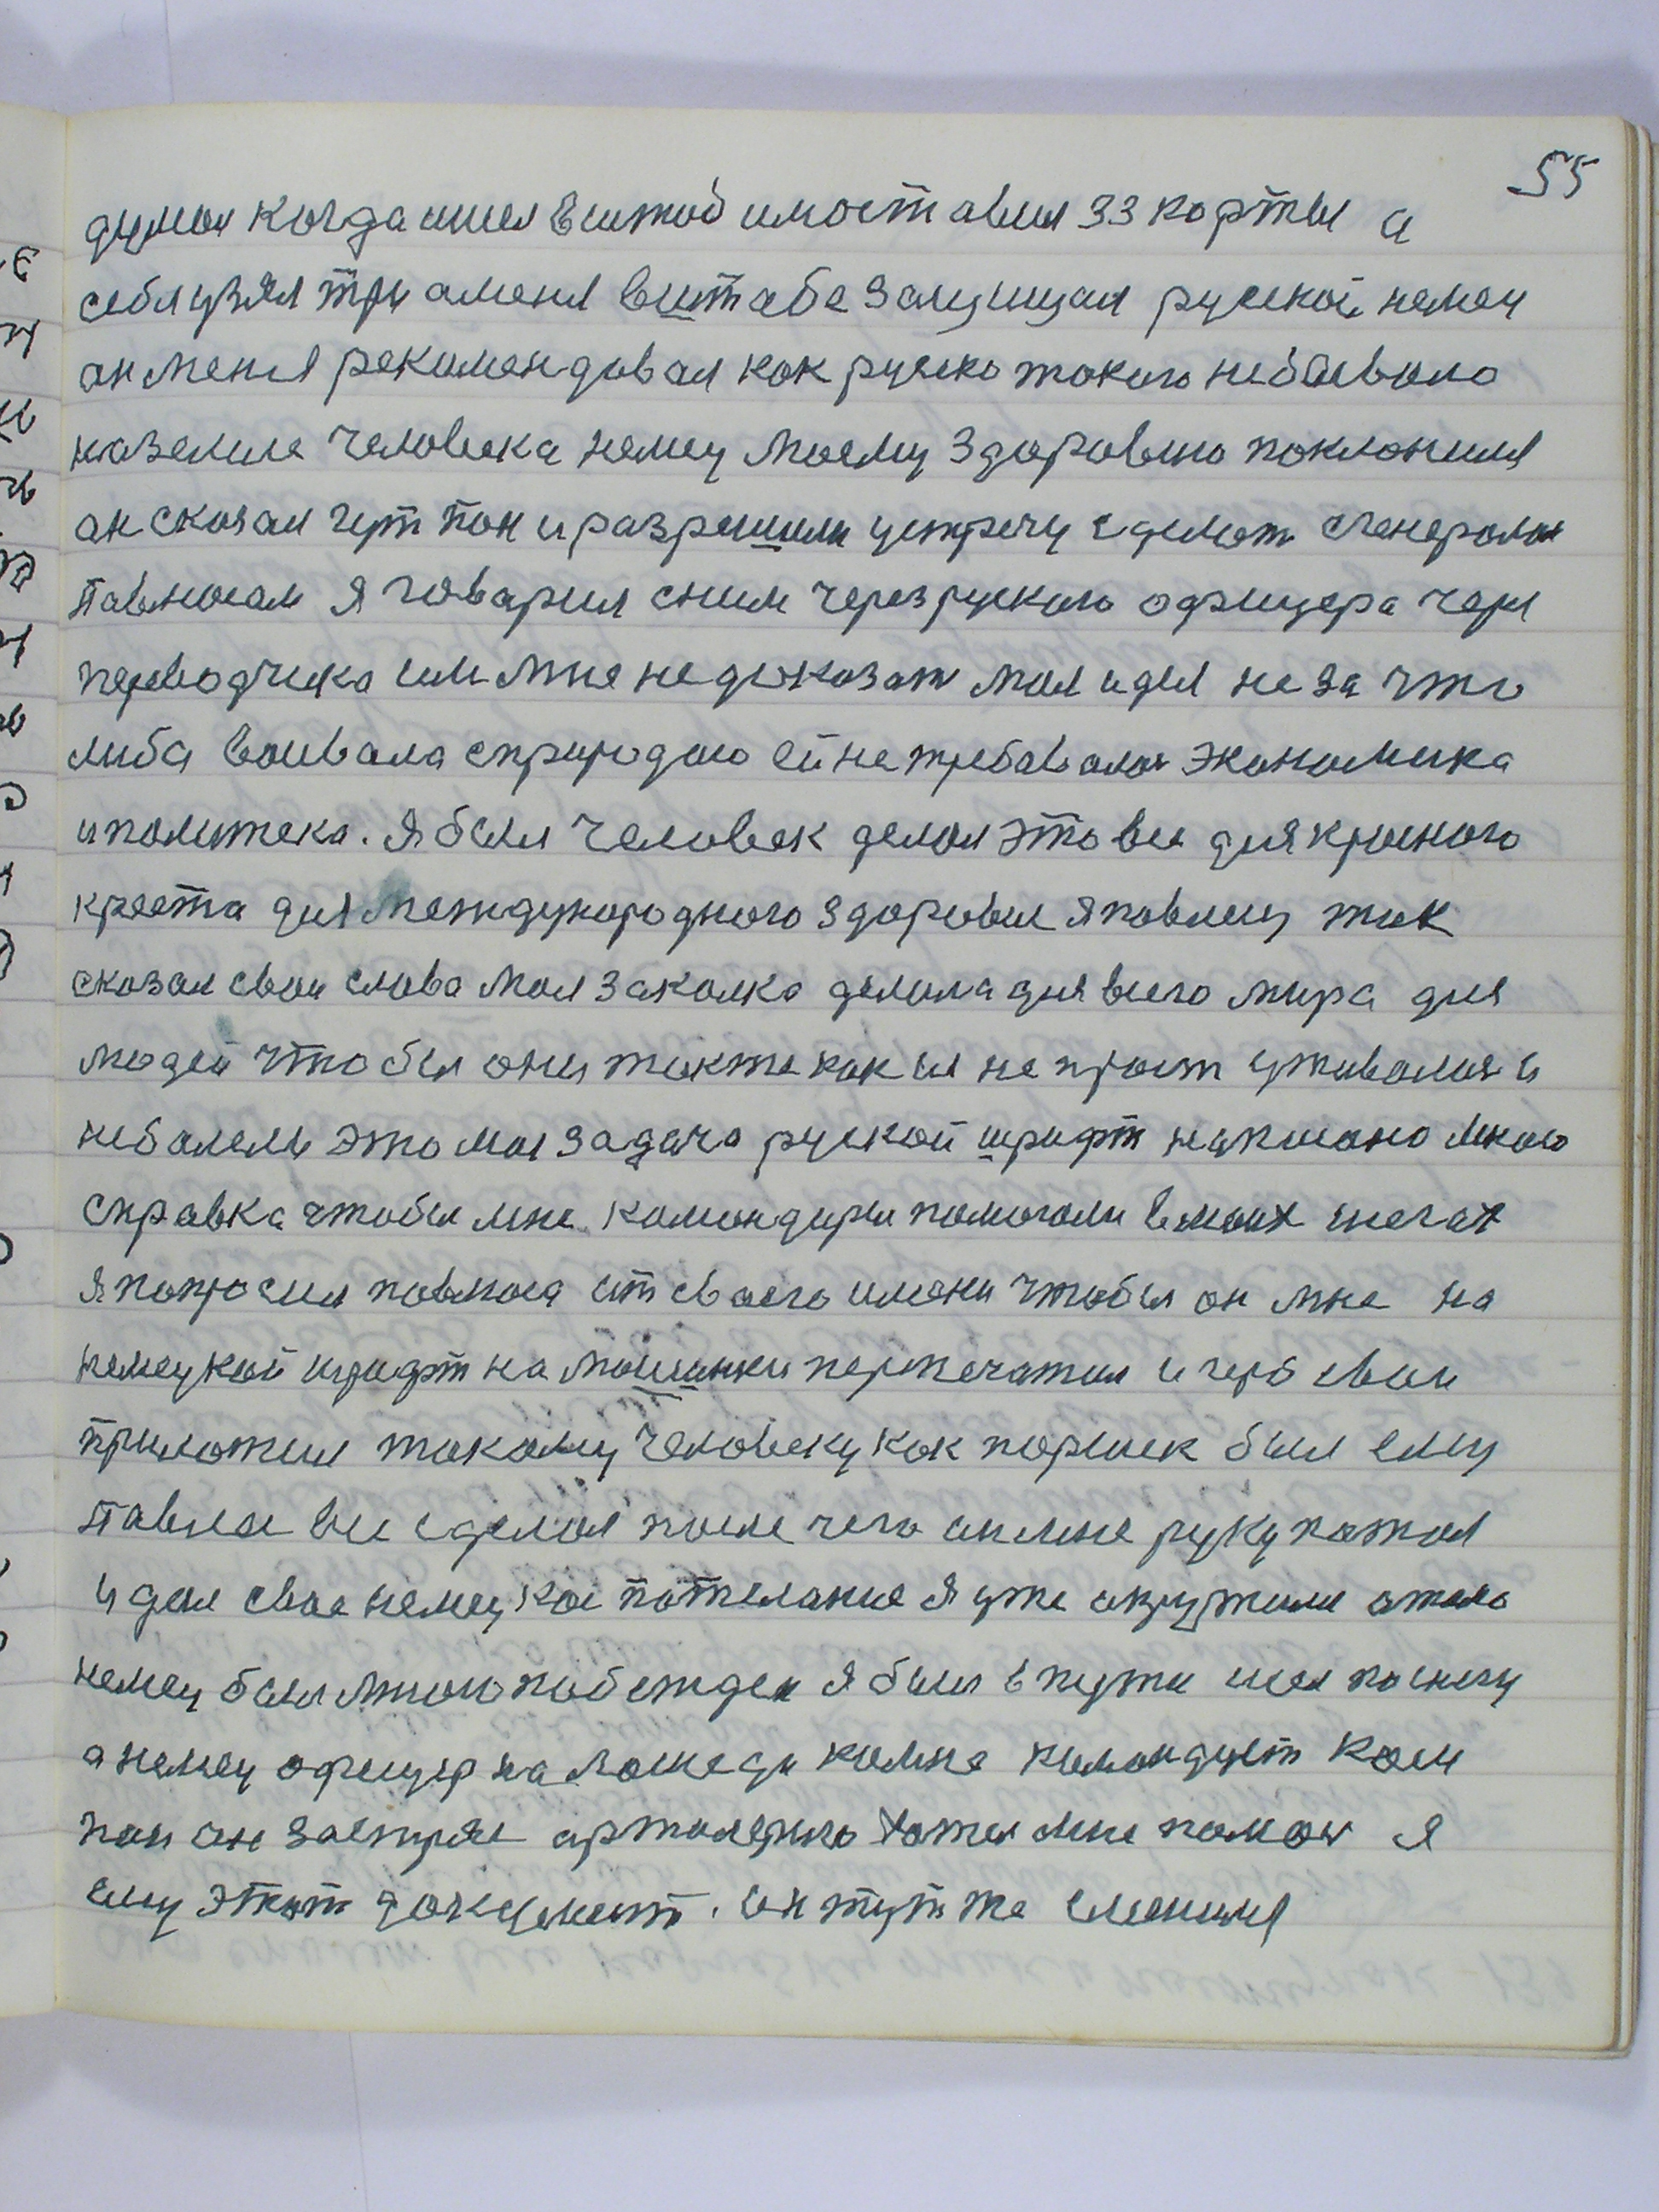 55
думал когда ишел вштаб имоставил 33 карты а
себя узял три аменя вштабе защищал руской немец
он меня рекомендавал как руско такого небывало
наземле человека немец моему здоровию поклонился
ан сказал гут пан иразрешили устречу сделат сгенералом
павлюсам я гаварил сним через руского офицера через
переводчика им мне недоказат моя идея не за что
либа воивала сприродою ей нетребавалас экономика
иполитека. я был человек делал это все для красного
креста для международного здоровия япавлюсу так
сказал свои слова моя закалка делала для всего мира для
людей чтобы они также как ия не прост уживалися и
неболели это моя задача руской шрифт напис<br>ано много
справка чтобы мне командиры помогали вмоих снегах
япопросил павлюса ат своего имени чтобы он мне на
немецкой шрифт на машинки перепечатил и герб свои
приложил такому человеку как паршек был ему
павлюс все сделал после чего ан мне руку пажал
и дал свое немецкое пожелание я уже
немец был мною побежден я был впути шел поснегу
анемец офицер на лошеди комне командует ком
пан он застрял артилерию хотел мне памоч я
ему этот документ. он тут же сменился